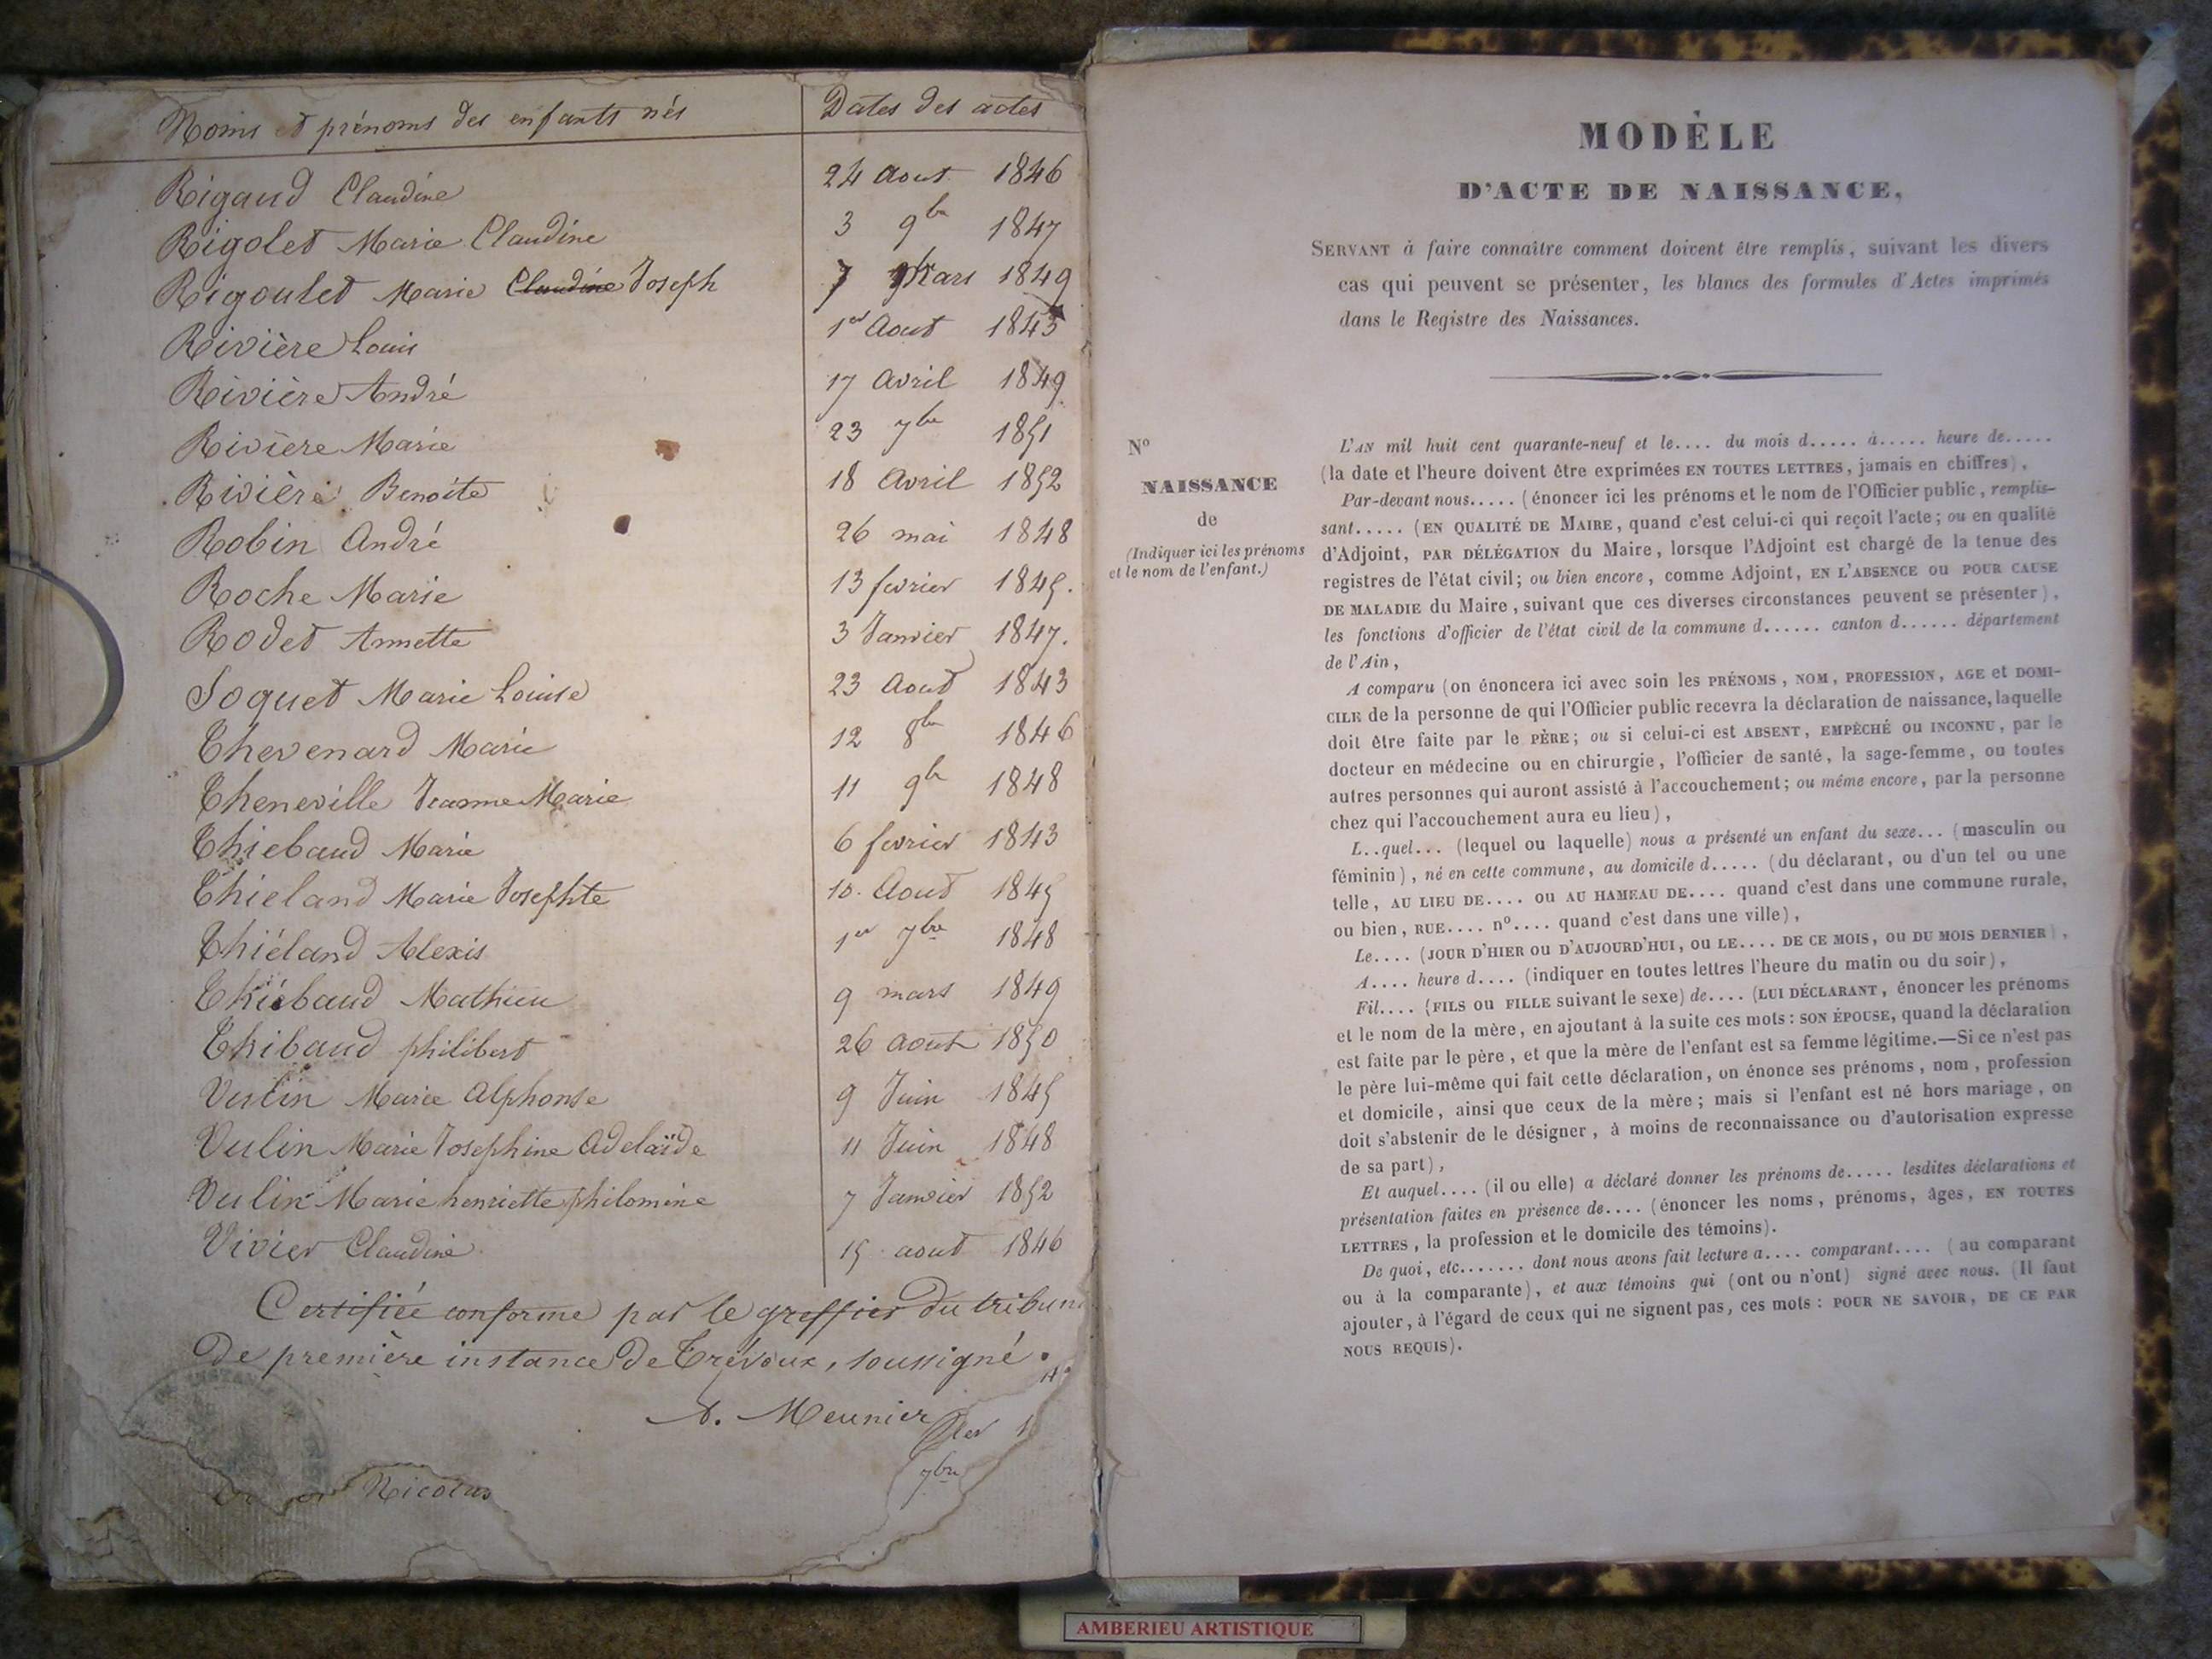 Noms et prénoms des enfants nés
Dates des actes
Rigaud Claudine 24 Aout 1846
Rigolet Marie Claudine 3 9bre 1847
Rigoulet Marie Claudine Joseph 7 Mars 1849
Rivière Louis 1er Aout 1843
Rivière André 17 Avril 1849
Rivière Marie 23 7bre 1851
Rivière Benoite 18 Avril 1852
Robin André 26 mai 1848
Roche Marie 13 fevrier 1845.
Rodet Annette 3 Janvier 1847.
Soquet Marie Louise 23 Aout 1843
Thevenard Marie 12 8bre 1846
Theneville Jeanne Marie 11 9bre 1848
Thiebaud Marie 6 fevrier 1843
Thieland Marie Josephte 10. Aout 1845
Thiéland Alexis 1er 7bre 1848
Thiébaud Mathieu 9 mars 1849
Thibaud philibert 26 aout 1850
Veslin Marie Alphonse 9 Juin 1845
Vulin Marie Josephine Adelaïde 11 Juin 1848
Vulin Marie henriette philomine 7 Janvier 1852
Vivier Claudine 15 aout 1846
Certifiée conforme par le greffier du tribun
de première instance de Trévoux, soussigné.
A. Meunier
7bre
Nicolas
MODÈLE
D'ACTE DE NAISSANCE,
SERVANT à faire connaître comment doivent être remplis, suivant les divers
cas qui peuvent se présenter, les blancs des formules d'Actes imprimés
dans le Registre des Naissances.
N°
NAISSANCE
de
(Indiquer ici les prénoms
et le nom de l'enfant.)
L'AN mil huit cent quarante-neuf et le.... du mois d..... à..... heure de.....
(la date et l'heure doivent être exprimées EN TOUTES LETTRES, jamais en chiffres),
Par-devant nous..... (énoncer ici les prénoms et le nom de l'Officier public, remplis-
sant..... (EN QUALITÉ DE MAIRE, quand c'est celui-ci qui reçoit l'acte; ou en qualité
d'Adjoint, PAR DÉLÉGATION du Maire, lorsque l'Adjoint est chargé de la tenue des
registres de l'état civil; ou bien encore, comme Adjoint, EN L'ABSENCE ou POUR CAUSE
DE MALADIE du Maire, suivant que ces diverses circonstances peuvent se présenter),
les fonctions d'officier de l'état civil de la commune d...... canton d...... département
de l'Ain,
A comparu (on énoncera ici avec soin les PRÉNOMS, NOM, PROFESSION, AGE et DOMI-
CILE de la personne de qui l'Officier public recevra la déclaration de naissance, laquelle
doit être faite par le PÈRE; ou si celui-ci est ABSENT, EMPÊCHÉ ou INCONNU, par le
docteur en médecine ou en chirurgie, l'officier de santé, la sage-femme, ou toutes
autres personnes qui auront assisté à l'accouchement; ou même encore, par la personne
chez qui l'accouchement aura eu lieu),
L..quel... (lequel ou laquelle) nous a présenté un enfant du sexe... (masculin ou
féminin), né en cette commune, au domicile d..... (du déclarant, ou d'un tel ou une
telle, AU LIEU DE.... OU AU HAMEAU DE.... quand c'est dans une commune rurale,
ou bien, RUE.... n°.... quand c'est dans une ville),
Le.... (JOUR D'HIER OU D'AUJOURD'HUI, OU LE.... DE CE MOIS, OU DU MOIS DERNIER),
A.... heure d.... (indiquer en toutes lettres l'heure du matin ou du soir),
Fil.... (FILS ou FILLE suivant le sexe) de.... (LUI DÉCLARANT, énoncer les prénoms
et le nom de la mère, en ajoutant à la suite ces mots: SON ÉPOUSE, quand la déclaration
est faite par le père, et que la mère de l'enfant est sa femme légitime.—Si ce n'est pas
le père lui-même qui fait cette déclaration, on énonce ses prénoms, nom, profession
et domicile, ainsi que ceux de la mère; mais si l'enfant est né hors mariage, on
doit s'abstenir de le désigner, à moins de reconnaissance ou d'autorisation expresse
de sa part),
Et auquel.... (il ou elle) a déclaré donner les prénoms de..... lesdites déclarations et
présentation faites en présence de.... (énoncer les noms, prénoms, âges, EN TOUTES
LETTRES, la profession et le domicile des témoins).
De quoi, etc....... dont nous avons fait lecture a.... comparant.... (au comparant
ou à la comparante), et aux témoins qui (ont ou n'ont) signé avec nous. (Il faut
ajouter, à l'égard de ceux qui ne signent pas, ces mots: POUR NE SAVOIR, DE CE PAR
NOUS REQUIS).
AMBERIEU ARTISTIQUE